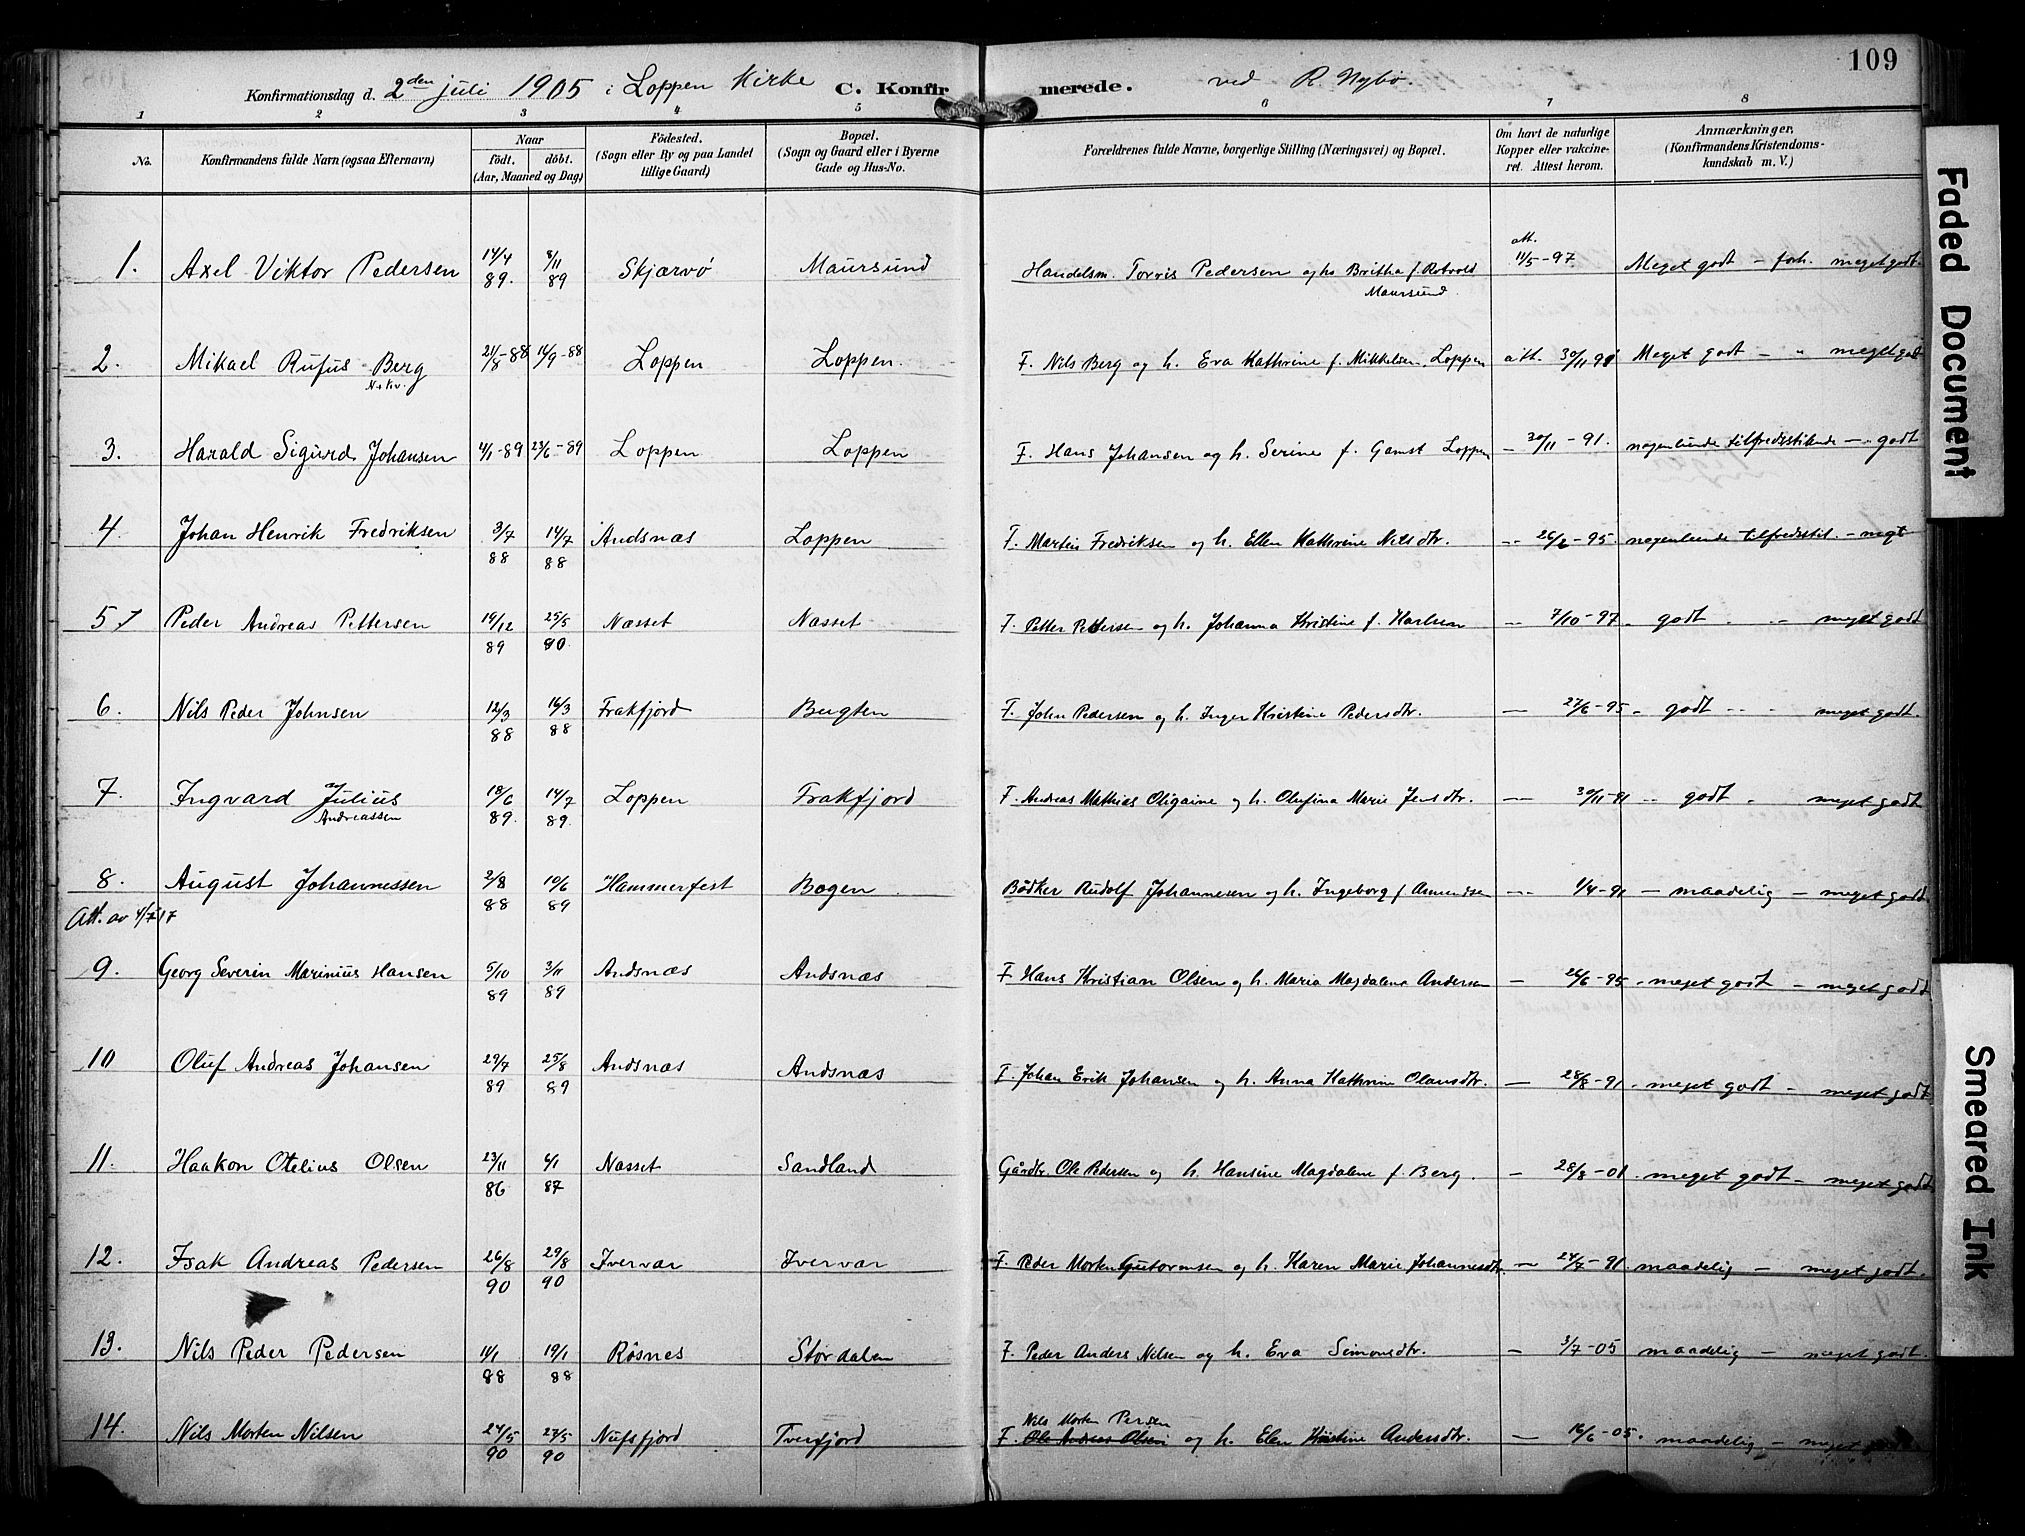 109
Konfirmationsdag d. 2den juli 1905 i Loppen Kirke C. Konfirmerede. ved R Nybø.
1 2 3 4 5 6 7 8
No.
Konfirmandens fulde Navn (ogsaa Efternavn)
Naar
födt. döbt.
(Aar, Maaned og Dag)
Födested.
(Sogn eller By og paa Landet
tillige Gaard)
Bopæl.
(Sogn og Gaard eller i Byerne
Gade og Hus-No.
Forældrenes fulde Navne, borgerlige Stilling (Næringsvei) og Bopæl.
Om havt de naturlige
Kopper eller vakcine-
ret. Attest herom.
Anmærkninger,
(Konfirmandens Kristendoms-
kundskab m. V.)
1. Axel Viktor Pedersen 14/4 89. 8/11 89 Skjærvö Maursund Handelsm. Torris Pedersen og h. Britha f. Rotvold att. 11/5-97. Meget godt - forh. meget godt.
Maursund.
2. Mikael Rufus Berg 21/8-88 16/9-88 Loppen Loppen. F. Nils Berg og h. Eva Kathrine f. Mikkelsen, Loppen att. 30/11 91 Meget godt - " meget godt
3. Harald Sigurd Johansen 4/1-89 23/6-89 Loppen Loppen F. Hans Johansen og h. Serine f. Gamst Loppen - 30/11-91. nogenlunde tilfredsstillende - godt
4. Johan Henrik Fredriksen 3/7 88 14/7 88 Andsnæs Loppen F. Martin Fredriksen og h. Ellen Kathrine Nilsdtr. - 26/2-95 nogenlunde tilfredsstil. - megt
5 Peder Andreas Pettersen 19/12 89 25/5 90. Næsset Næsset F. Petter Pettersen og h. Johanna Kristine f. Karlsen - 7/10-97 - godt - meget godt
6. Nils Peder Johnsen 12/3 88 16/3 88 Frakfjord Bugten F. John Pedersen og h. Inger Kristine Pedersdtr. - 27/6-95 - godt - meget godt.
7. Ingvard Julius Andreassen 18/6 89. 14/7 89. Loppen Frakfjord F. Andreas Mathias Oligaine og h. Olufina Marie Jensdtr. - 30/11-91 - godt - meget godt
8. August Johannessen 2/8 88 10/6 89 Hammerfest Bogen Bödker Rudolf Johannesen og h. Ingeborg f. Amundsen - 1/4-91 - maadelig - meget godt
Att. av 4/7 17
9. Georg Severin Marinius Hansen 5/10 89 3/11 89 Andsnæs Andsnæs F Hans Kristian Olsen og h. Maria Magdalena Andersen - 26/6-95 - meget godt - meget godt
10 Oluf Andreas Johansen 29/7 89 25/8 89 Andsnæs Andsnæs F. Johan Erik Johansen og h. Anna Kathrine Olausdtr. - 28/8-91 - meget godt - meget godt
11. Haakon Otelius Olsen 23/11 86 6/1 87 Næsset Sandland Gårdbr. Ole Pedersen og h. Hansine Magdalene f. Berg. - 28/8-01. meget godt - meget godt
12. Isak Andreas Pedersen 26/8 90 29/8 90 Ivervær Ivervær F. Peder Morten Gustavansen og h. Karen Marie Johannesdtr. - 24/7-91 maadelig - meget godt.
13. Nils Peder Pedersen 11/1 88 19/1 88 Rösnes Stordalen F. Peder Anders Nilsen og h. Eva Simonsdtr. - 3/7-05 maadelig - meget godt.
14. Nils Morten Nilsen 24/5 90 27/5 90 Nufsfjord Tverfjord F. Ole Andreas Olsen Nils Morten Persen og h. Elen Kristine Andersdtr. - 16/6-05. maadelig - meget
Faded Document
Smeared Ink